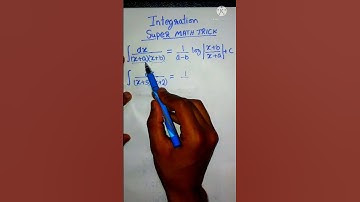 Integration
SUPER MATH TRICK
∫ dx / (x+a)(x+b) = 1 / a-b log |x+b / x+a| + C
∫ / (x+3)(x+2) = 1